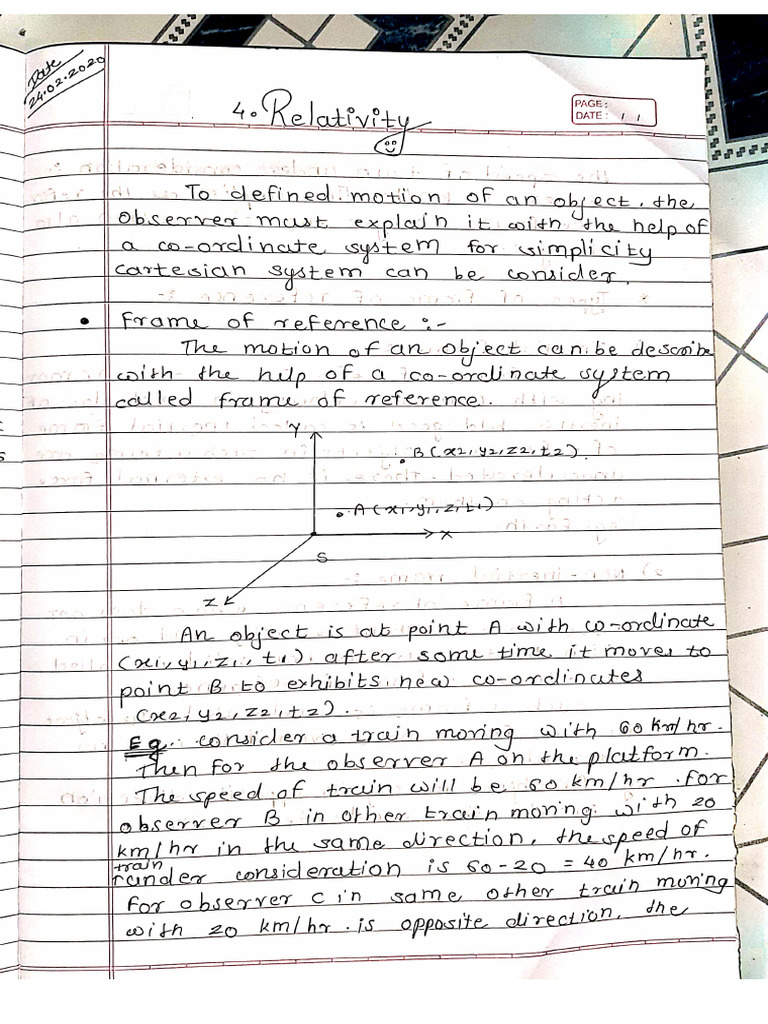 Date
24.02.2020
4. Relativity
PAGE:
DATE: / /
To defined motion of an object, the
observer must explain it with the help of
a co-ordinate system for simplicity
cartesian system can be consider.
• Frame of reference :-
The motion of an object can be describe
with the help of a co-ordinate system
called frame of reference.
Y
B(x2, y2, z2, t2)
A(x1, y1, z, t1)
X
S
Z
An object is at point A with co-ordinate
(x1, y1, z1, t1) after some time it moves to
point B to exhibits new co-ordinates
(x2, y2, z2, t2).
Eg. consider a train moving with 60 km/hr.
Then for the observer A on the platform.
The speed of train will be 60 km/hr. for
observer B in other train moving with 20
km/hr in the same direction, the speed of
train
under consideration is 60-20 = 40 km/hr.
For observer C in same other train moving
with 20 km/hr. is opposite direction, the